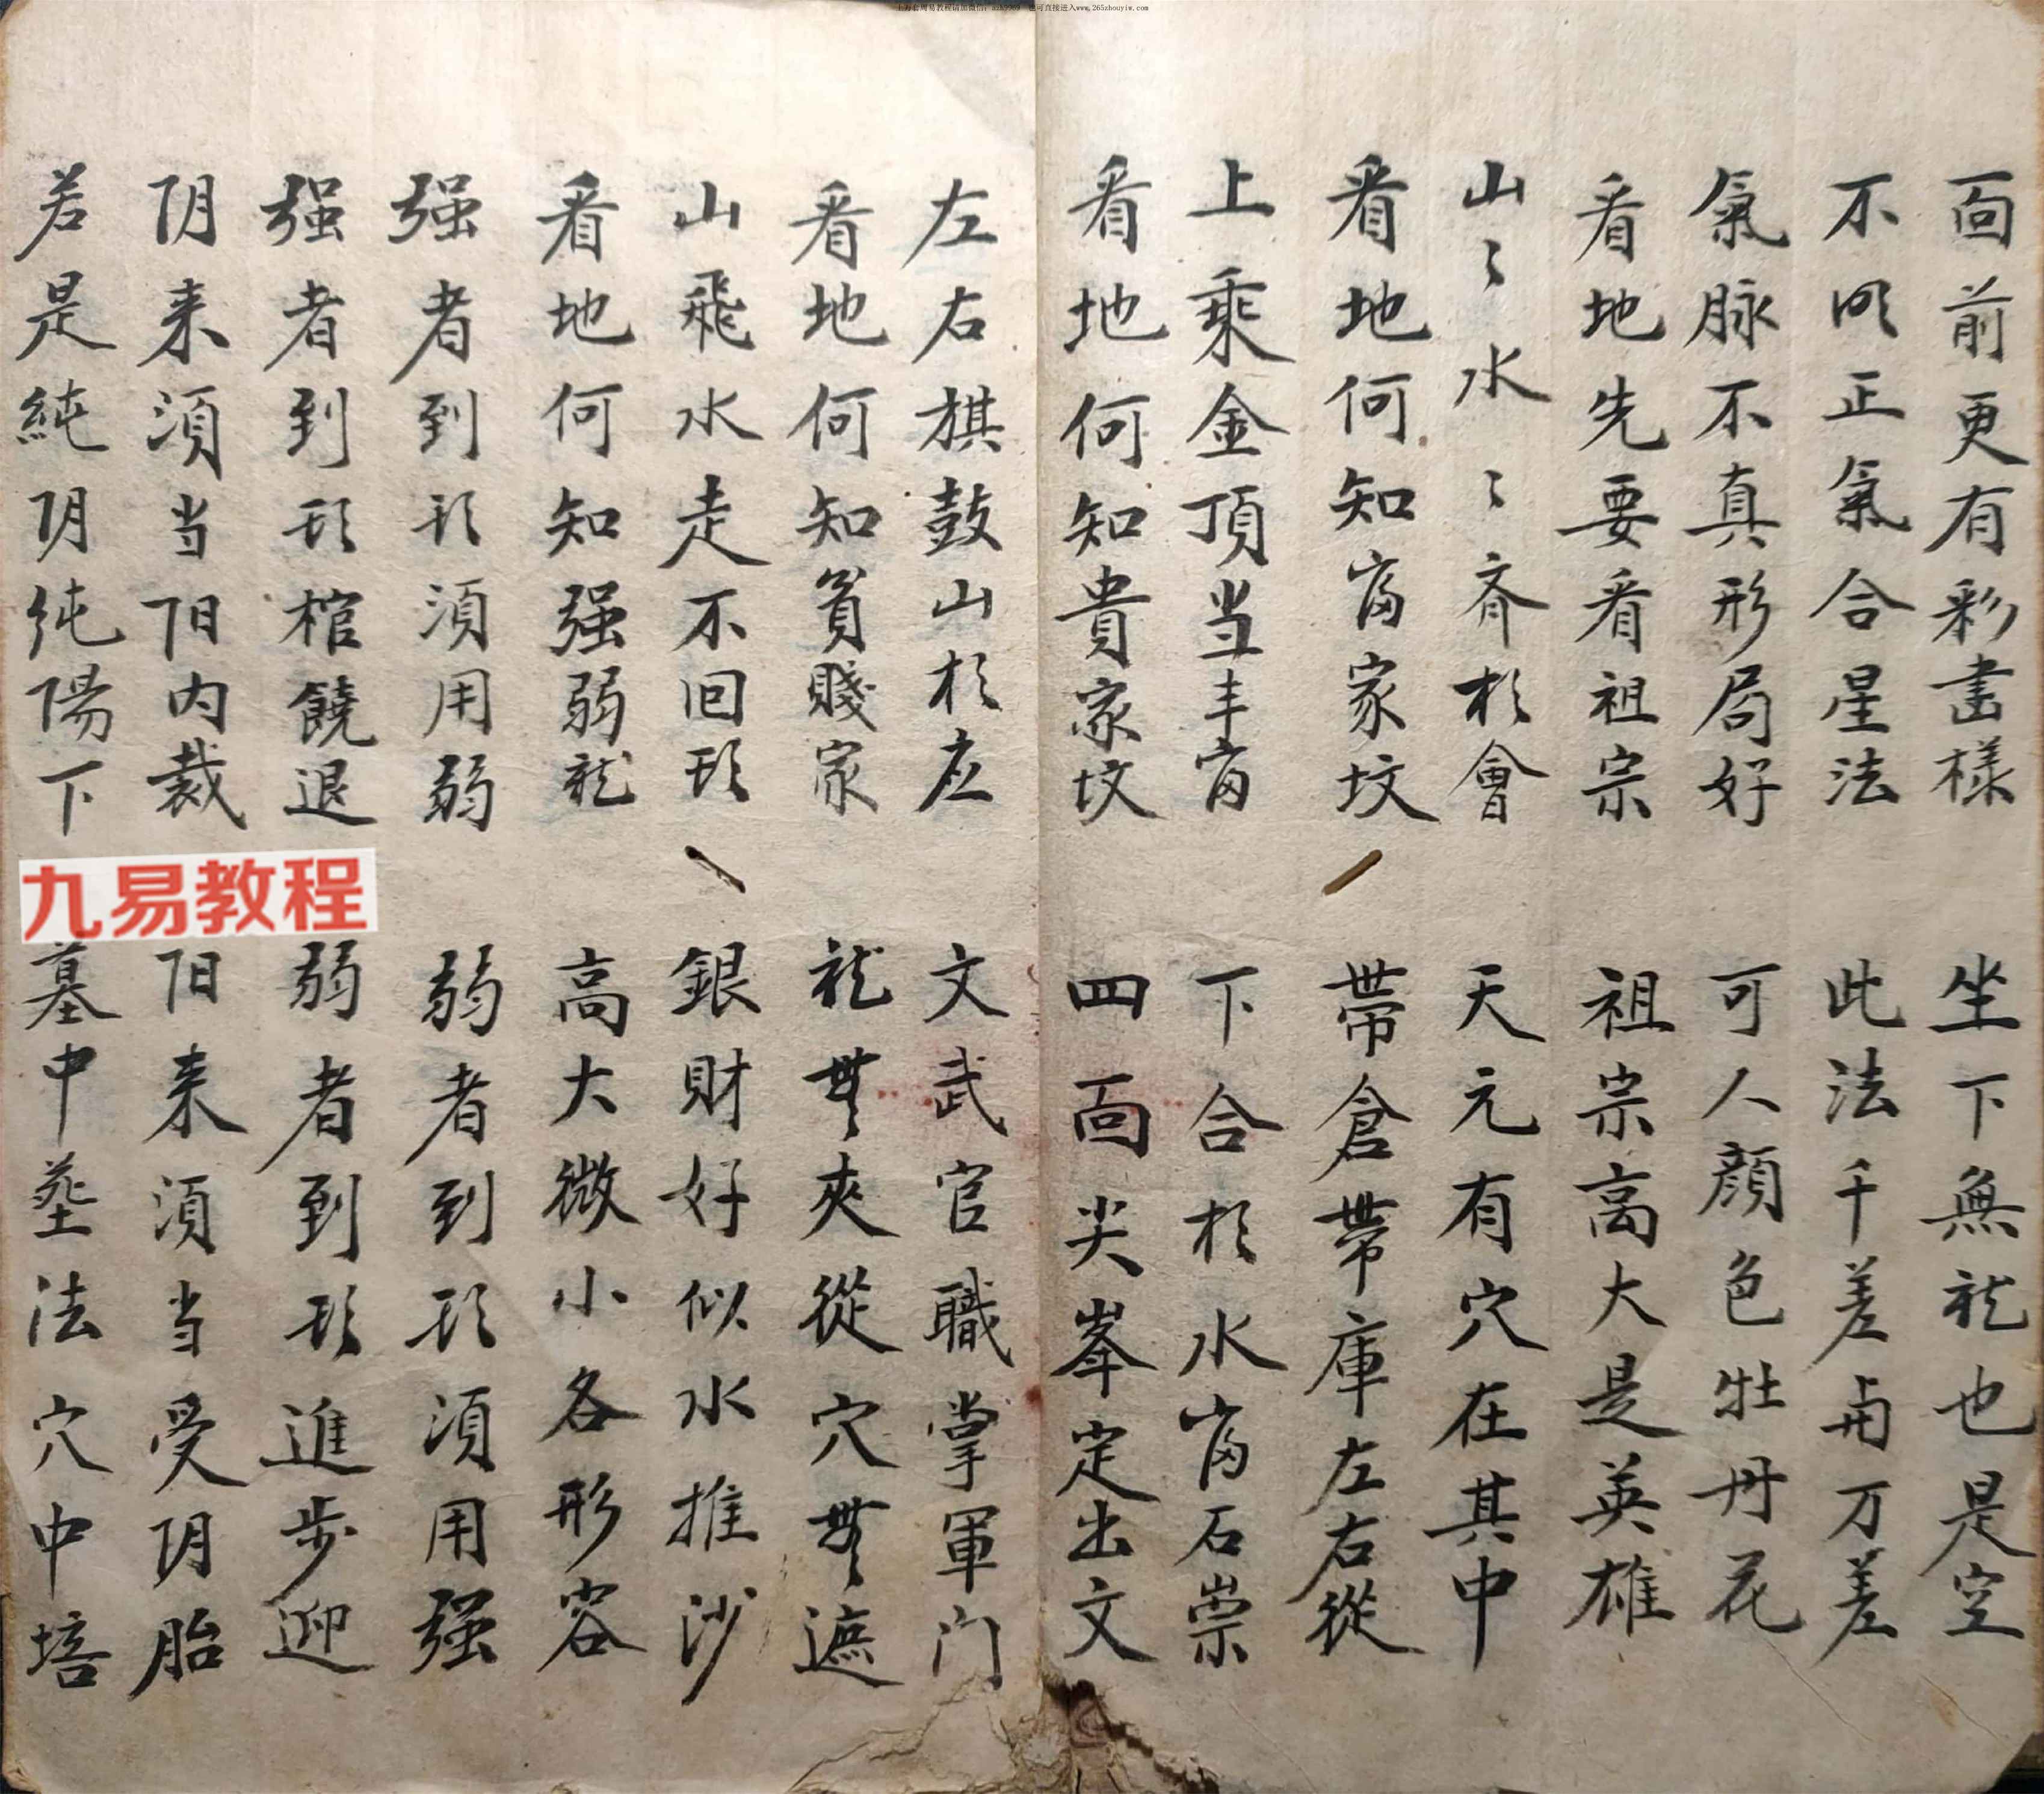 面前更有彩畫樣 坐下無龍也是空
不明正氣合星法 此法千差与万差
氣脉不真形局好 可人顔色牡丹花
看地先要看祖宗 祖宗高大是英雄
山〻水〻齐相會 天元有穴在其中
看地何知富家坟 帶倉帶庫左右從
上乘金頂当丰富 下合相水富石崇
看地何知貴家坟 四面尖峯定出文
左右旗鼓山相应 文武官職掌軍门
看地何知貧賤家 龍無夾從穴無遮
山飛水走不回頭 銀財好似水推沙
看地何知强弱龍 高大微小各形容
强者到頭須用弱 弱者到頭須用强
强者到頭棺饒退 弱者到頭進步迎
阴来須当阳内裁 阳来須当受阴胎
若是純阴纯陽下 墓中塟法穴中培
九易教程
www.265zhouyiw.com